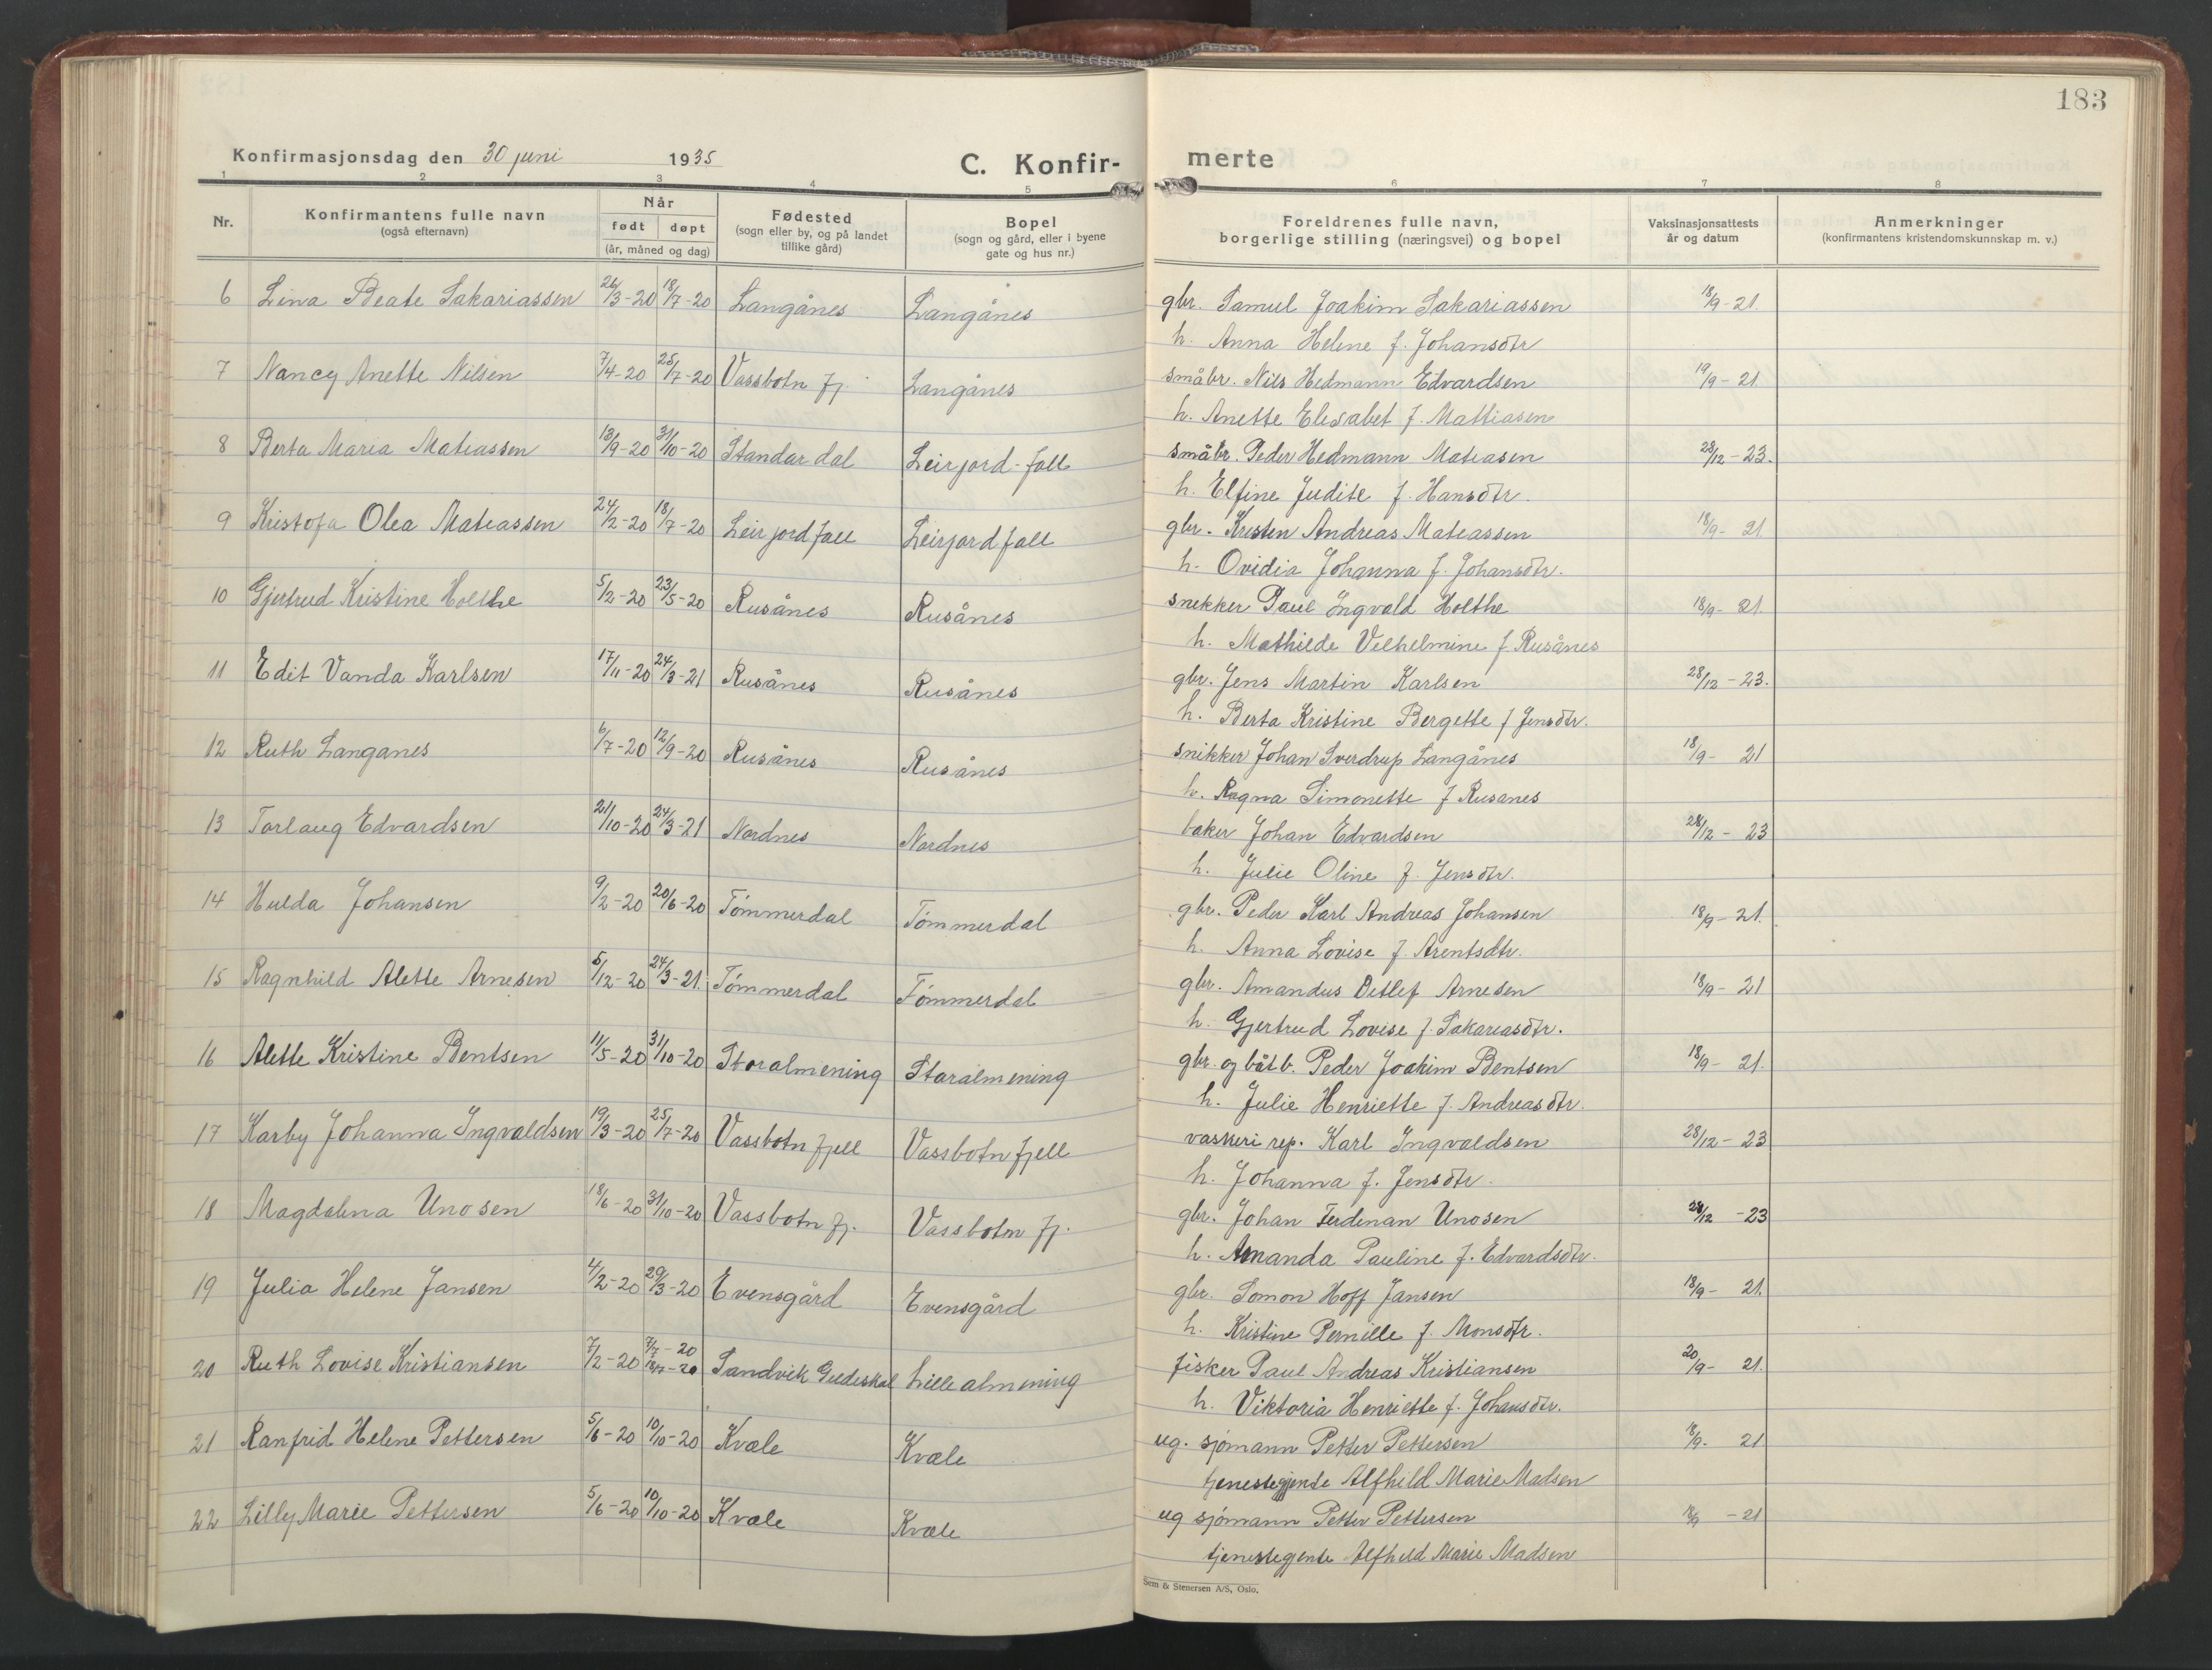 183
Konfirmasjonsdag den 30 juni 1935
C. Konfir-merte
1 2 3 4 5 6 7 8
Nr.
Konfirmantens fulle navn
(også efternavn)
Når
født døpt
(år, måned og dag)
Fødested
(sogn eller by, og på landet
tillike gård)
Bopel
(sogn og gård, eller i byene
gate og hus nr.)
Foreldrenes fulle navn,
borgerlige stilling (næringsvei) og bopel
Vaksinasjonsattests
år og datum
Anmerkninger
(konfirmantens kristendomskunnskap m. v.)
6 Lina Beate Sakariassen 26/3-20 18/7-20 Langånes Langånes gbr. Samul Joakim Sakariassen 18/9-21.
h. Anna Helene f. Johansdtr
7 Nancy Anette Nilsen 7/4-20 25/7-20 Vassbotn fj. Langånes småbr. Nils Hedmann Edvardsen 19/9-21.
h. Anette Elisabet f. Mattiasen
8 Berta Maria Matiassen 13/9-20 31/10-20 Standardal Leirjord-fall småbr. Peder Hedmann Matiasen 28/12-23.
h. Elfine Judite f. Hansdtr.
9 Kristofa Olea Matiassen 24/2-20 18/7-20 Leirjordfall Leirjordfall gbr. Kristen Andreas Matiassen 18/9-21
h. Ovidia Johanna f. Johansdtr.
10 Gjertrud Kristine Holthe 5/2-20 23/5-20 Rusånes Rusånes snekker Paul Ingvald Holthe 18/9-21.
h. Mathilde Vilhelmine f. Rusånes
11 Edit Vanda Karlsen 17/11-20 24/3-21 Rusånes Rusånes gbr. Jens Martin Karlsen 28/12-23.
h. Berta Kristine Bergette f Jensdtr.
12 Ruth Langanes 6/7-20 12/9-20 Rusånes Rusånes snikker Johan Sverdrup Langånes 18/9-21
h. Ragna Simonette f Rusanes
13 Torlaug Edvardsen 21/10-20 24/3-21 Nordnes Nordnes baker Johan Edvardsen 28/12-23
h. Julie Oline f. Jensdtr.
14 Hulda Johansen 9/2-20 20/6-20 Tömmerdal Tömmerdal gbr. Peder Karl Andreas Johansen 18/9-21.
h. Anna Lovise f. Arentsdtr.
15 Ragnhild Alette Arnesen 5/12-20 24/3-21. Tömmerdal Tömmerdal gbr. Amandus Detlef Arnesen 18/9-21
h. Gjertrud Lovise f. Sakariasdtr.
16 Alette Kristine Bentsen 11/5-20 31/10-20 Storalmening Storalmening gbr. og båtb. Peder Joakim Bentsen 18/9-21.
h. Julie Henriette f. Andreasdtr.
17 Karby Johanna Ingvaldsen 19/3-20 25/7-20 Vassbotn fjell Vassbotn fjell vaskeri rep. Karl Ingvaldsen 28/12-23
h. Johanna f. Jensdtr.
18 Magdalena Unosen 18/6-20 31/10-20 Vassbotn fj. Vassbotn fj. gbr. Johan Ferdinan Unosen 28/12-23
h. Amanda Pauline f. Edvardsdtr.
19 Julia Helene Jansen 4/2-20 29/3-20 Evensgård Evensgård gbr. Somon Hoff Jansen 18/9-21.
h. Kristine Pernille f. Monsdtr.
20 Ruth Lovise Kristiansen 7/2-20 7/7-20 Sandvik Gildeskal Lille almening fisker Paul Andreas Kristiansen 20/9-21.
h. Viktoria Henriette f. Johansdtr.
21 Ranfrid Helene Pettersen 5/6-20 10/10-20 Kvæle Kvæle ug. sjömann Petter Pettersen 18/9-21
tjenestegjente Alfhild Marie Madsen
22 Lilly Marie Pettersen 5/6-20 10/10-20 Kvale Kvale ug sjömann Petter Pettersen 18/9-21
tjenestegjente Alfhild Marie Madsen
Sem & Stenersen A/S, Oslo.